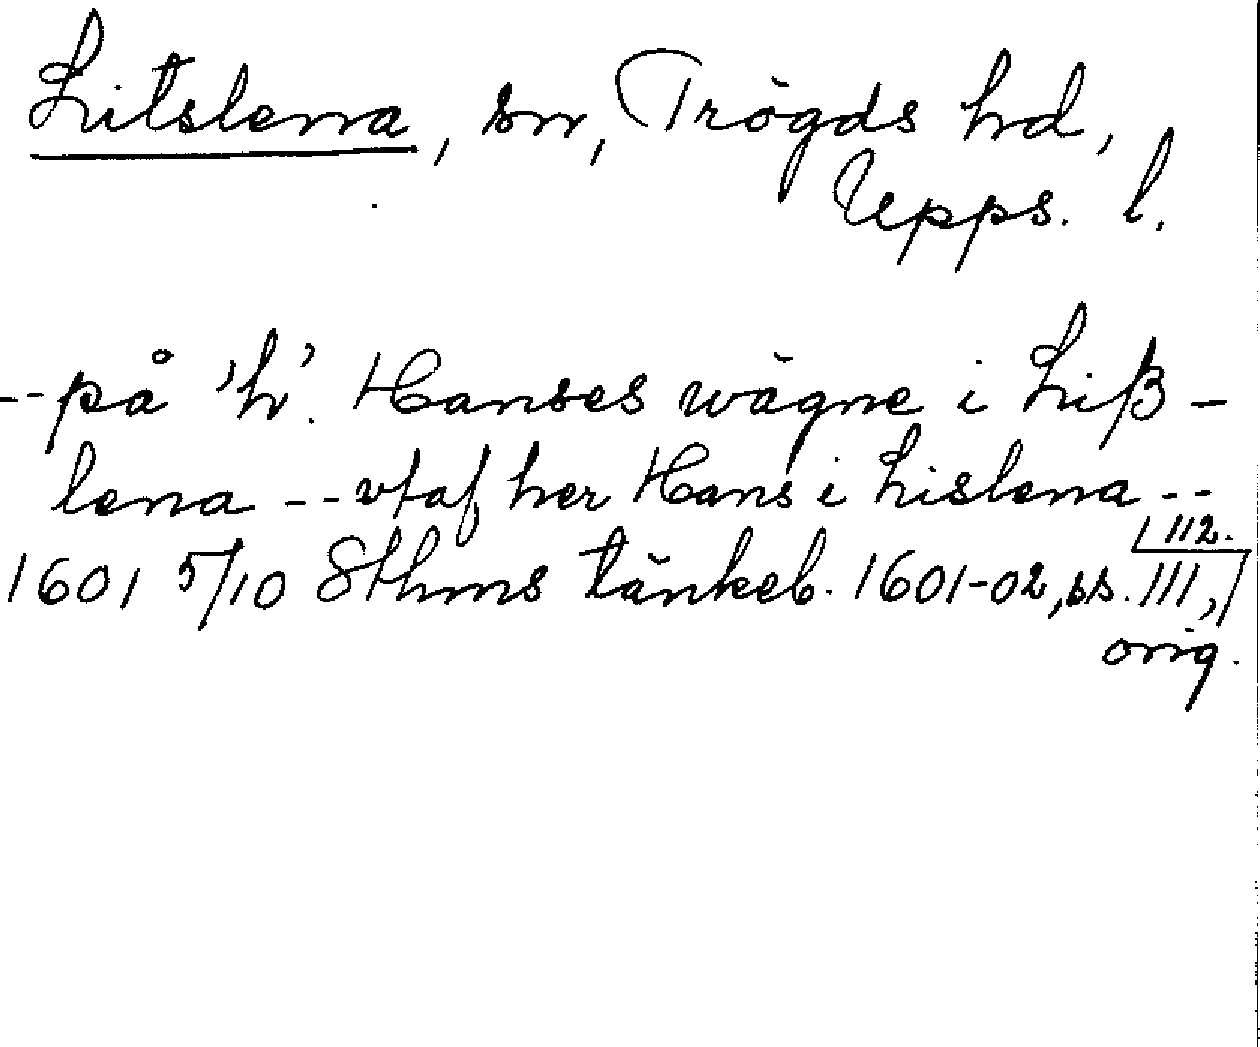 Litslena, sn, Trögds hd,
Upps. l.
-- på 'h'. Hanses wägne i Liß-
lena -- vtaf her Hans i Lislena --
112.
1601 5/10 Sthms tänkeb. 1601-02, ss. 111,
orig.